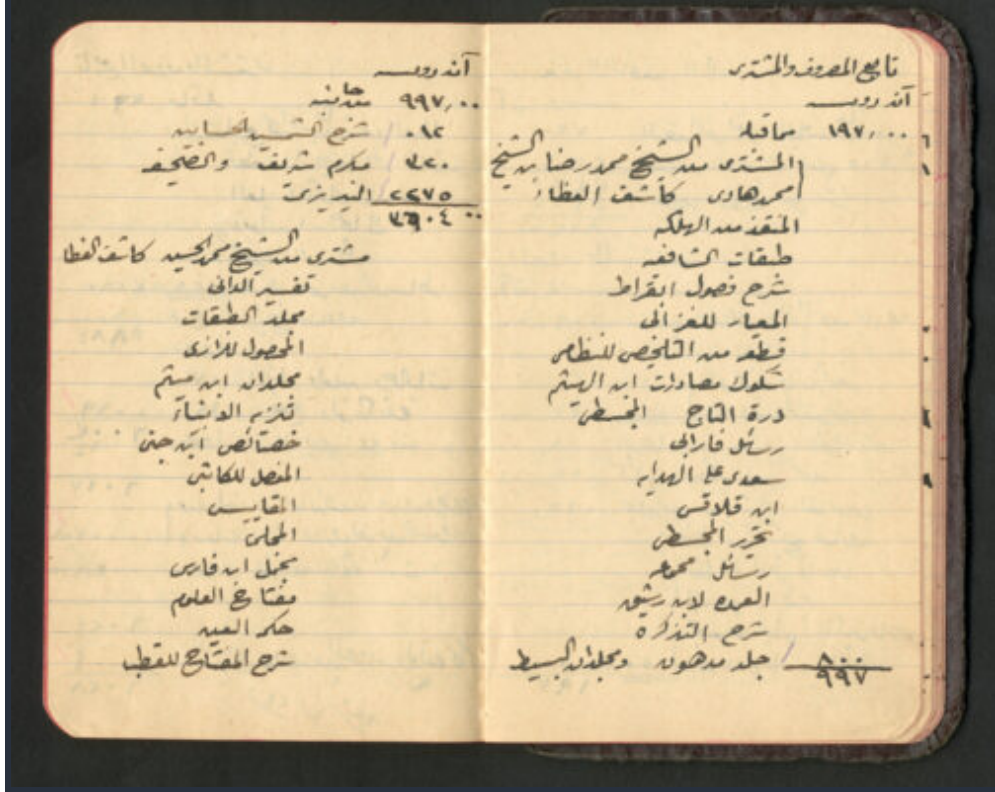 تابع المصروف والمشترى
آنه روپيه
١٩٧,٠٠ مما قبله
المشترى من الشيخ محمد رضا بن الشيخ
محمد هادى كاشف الغطاء
المنقذ من الهلكه
طبقات الشافعيه
شرح فصول ابقراط
المعيار للغزالى
قطعه من التلخيص للنظامى
شكوك مصادرات ابن الهيثم
درة التاج المجسطى
رسائل فارابى
سعدى على الهدايه
ابن قلاقس
تحرير المجسطى
رسائل مجموعه
العمده لابن رشيق
شرح التذكرة
٨٠٠ جلد مدهون ومجلدان البسيط
٩٩٧
آنه روپيه
٩٩٧,٠٠
٠١٢ شرح الشمسيه الحسابيه
٣٢٠ مكرم شريف والصحيفه
٢٢٧٥ التبريزى
٣٦٠٤
مشترى من الشيخ محمد الحسين كاشف الغطا
تفسير الوانى
مجلد الطبقات
المحصول للرازى
مجلدان ابن ميثم
تنزيه الانبياء
خصائص ابن جنى
المفصل للكاتبى
المقاييس
المحلى
مجمل ابن فارس
مفتاح العلوم
حكمه العين
شرح المفتاح للقطب